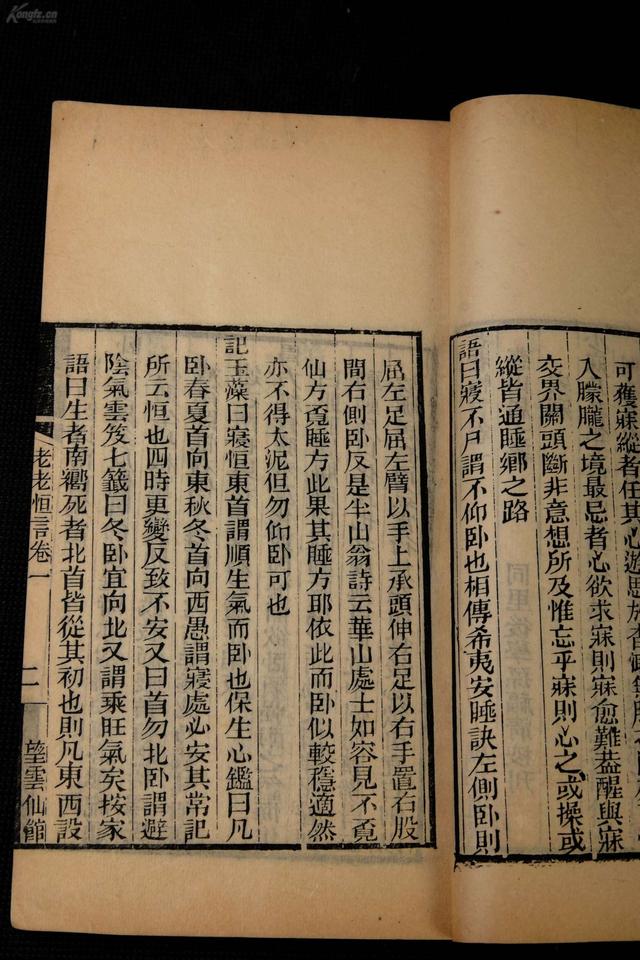 Kongfz.cn
可獲寐縱者任其心遊思於杳
入朦朧之境最忌者心欲求寐則寐愈難蓋醒與寐
交界關頭斷非意想所及惟忘乎寐則心之或操或
縱皆通睡鄉之路
語曰寢不尸謂不仰卧也相傳希夷安睡訣左側卧則
屈左足屈左臂以手上承頭伸右足以右手置右股
間右側卧反是半山翁詩云華山處士如容見不覔
仙方覔睡方此果其睡方耶依此而卧似較穩適然
亦不得太泥但勿仰卧可也
記玉藻曰寢恒東首謂順生氣而卧也保生心鑑曰凡
卧春夏首向東秋冬首向西愚謂寢處必安其常記
所云恒也四時更變反致不安又曰首勿北卧謂避
陰氣雲笈七籤曰冬卧宜向北又謂乘旺氣矣按家
語曰生者南嚮死者北首皆從其初也則凡東西設
老老恒言卷一
二
望雲仙館